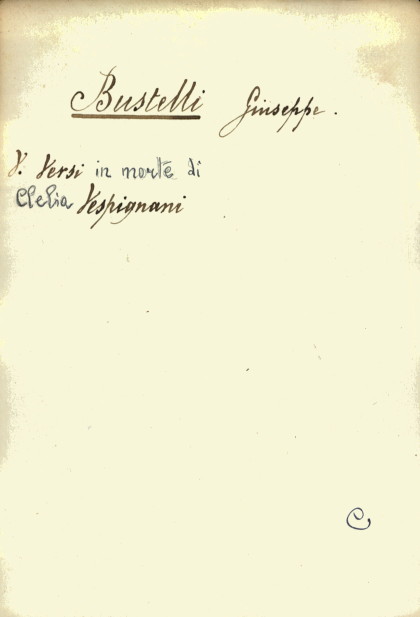 Bustelli Giuseppe.
V. Versi in morte di
Clelia Vespignani
C